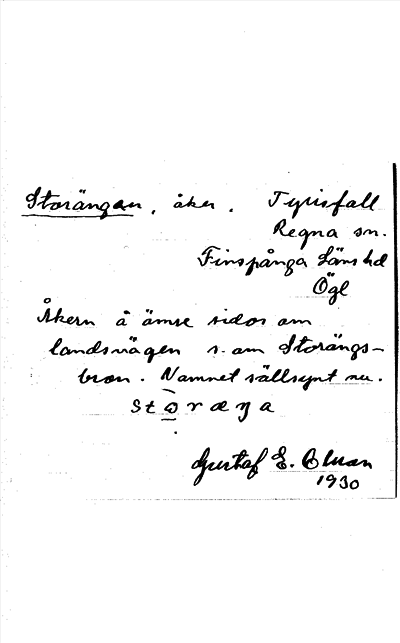 Storängen, åker. Tyrisfall
Regna sn.
Finspånga Läns hd
Ögl
Åkern å ömse sidor om
landsvägen s. om Storängs-
bron. Namnet sällsynt nu.
Storæŋa
Gustaf E.
1930